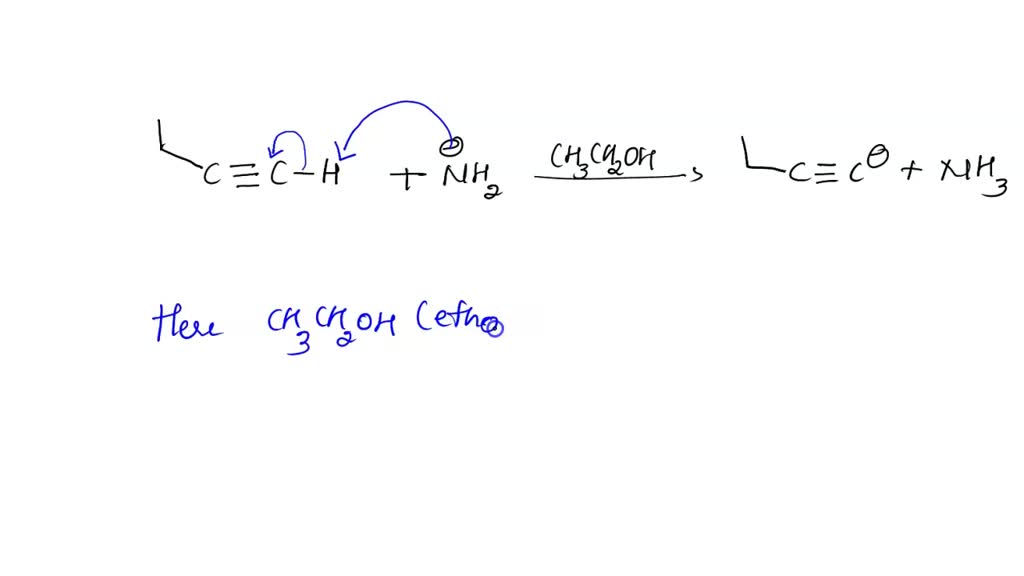 C≡C-H + ⊖NH2 CH3CH2OH → C≡C⊖ + NH3
Here CH3CH2OH (etha